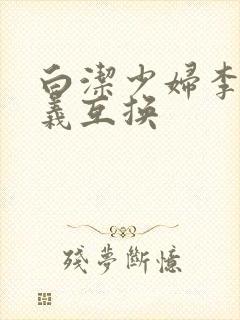 白潔少婦李
義互換
殘夢斷憶